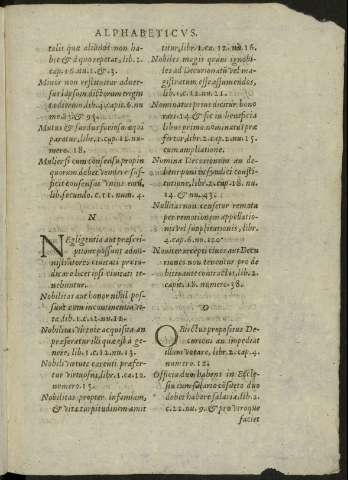 ALPHABETICVS.
tolit quæ aliunde non habit & à quo repetat, lib. 2.
cap. 16. nu. 1. & 3.
Minor non restituitur aduer-
numero. 18.
Mulier si cum consensu propin
quorum debet vendere suf-
ficit consensus vnius
lib. secundo. c. 11. num. 4.
N
NEgligentia aut præscri-
ptione possunt admi-
nistratores ciuitati præiu-
dicare licet ipsi ciuitati te-
nebuntur.
Nobilitas aut honor nihil pos-
sunt cum incontinentia
te, lib. 1. c. 12. nu. 12.
Nobilitas virtute acquisita an
præferatur illi quæ est à ge-
nere, lib. 1. c. 12. nu. 13.
Nobilis virtute carenti præfer-
tur virtuosus, libr. 1. ca. 12.
numero. 13.
Nobilitas propter infamiam,
& vitæ turpitudinem amit
titur, libr. 1. ca. 12. nu. 16.
Nobiles magis quam ignobi-
les ad Decurionatum vel ma-
gistratum esse assumendos,
lib. 1. c. 12. nu. 21.
Nominatus prius dicitur hono
ratior & sic in beneficia
libus primo nominatus præ
fertur, lib. 2. cap. 2. nu. 15.
cum ampliatione.
Nomina Decurionum an de-
beant poni in syndici consti-
tutione, libr. 2. cap. 18. nu.
14. & nu. 43.
Nullitas non censetur remota
per remotionem appellatio-
nis vel supplicationis, libr.
4. cap. 6. nu. 120.
Nouiter accepti ciues aut Decu
riones non tenentur pro de
bitis ante contractis, lib. 2.
capite. 18. numero. 38.
O
OBiectus propositus De-
curioni an impediat
illum votare, libr. 2. cap. 4.
numero. 12.
Officia duo habens in Eccle-
sia cum salario consueto duo
debet habere salaria, lib. 2.
c. 22. nu. 9. & pro vtroque
faciet